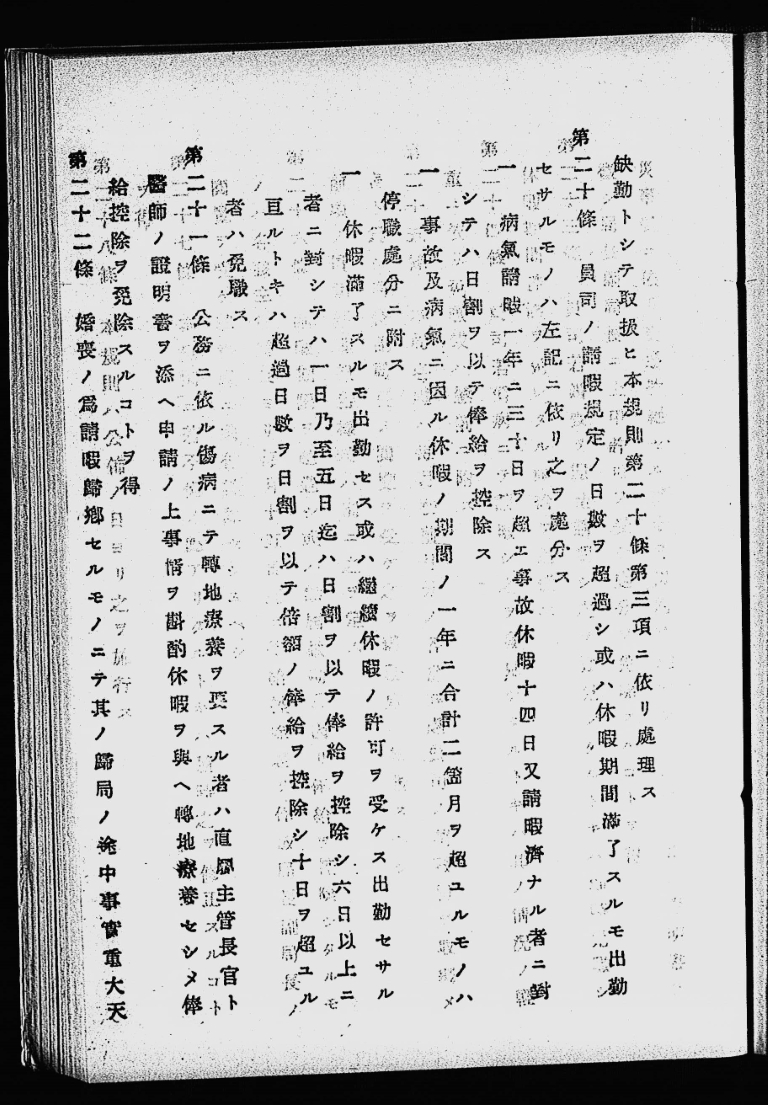 缺勤トシテ取扱ヒ本規則第二十條第三項ニ依リ處理ス
第二十條　員司ノ請暇規定ノ日數ヲ超過シ或ハ休暇期間滿了スルモ出勤
セサルモノハ左記ニ依リ之ヲ處分ス
一　病氣請暇一年ニ三十日ヲ超エ事故休暇十四日又請暇濟ナル者ニ對
シテハ日割ヲ以テ俸給ヲ控除ス
一　事故及病氣ニ因ル休暇ノ期間ノ一年ニ合計二箇月ヲ超ユルモノハ
停職處分ニ附ス
一　休暇滿了スルモ出勤セス或ハ繼續休暇ノ許可ヲ受ケス出勤セサル
者ニ對シテハ一日乃至五日迄ハ日割ヲ以テ俸給ヲ控除シ六日以上ニ
亘ルトキハ超過日數ヲ日割ヲ以テ倍額ノ俸給ヲ控除シ十日ヲ超ユル
者ハ免職ス
第二十一條　公務ニ依ル傷病ニテ轉地療養ヲ要スル者ハ直屬主管長官ト
醫師ノ證明書ヲ添ヘ申請ノ上事情ヲ斟酌休暇ヲ與ヘ轉地療養セシメ俸
給控除ヲ免除スルコトヲ得
第二十二條　婚喪ノ爲請暇歸鄕セルモノニテ其ノ歸局ノ途中事實重大天